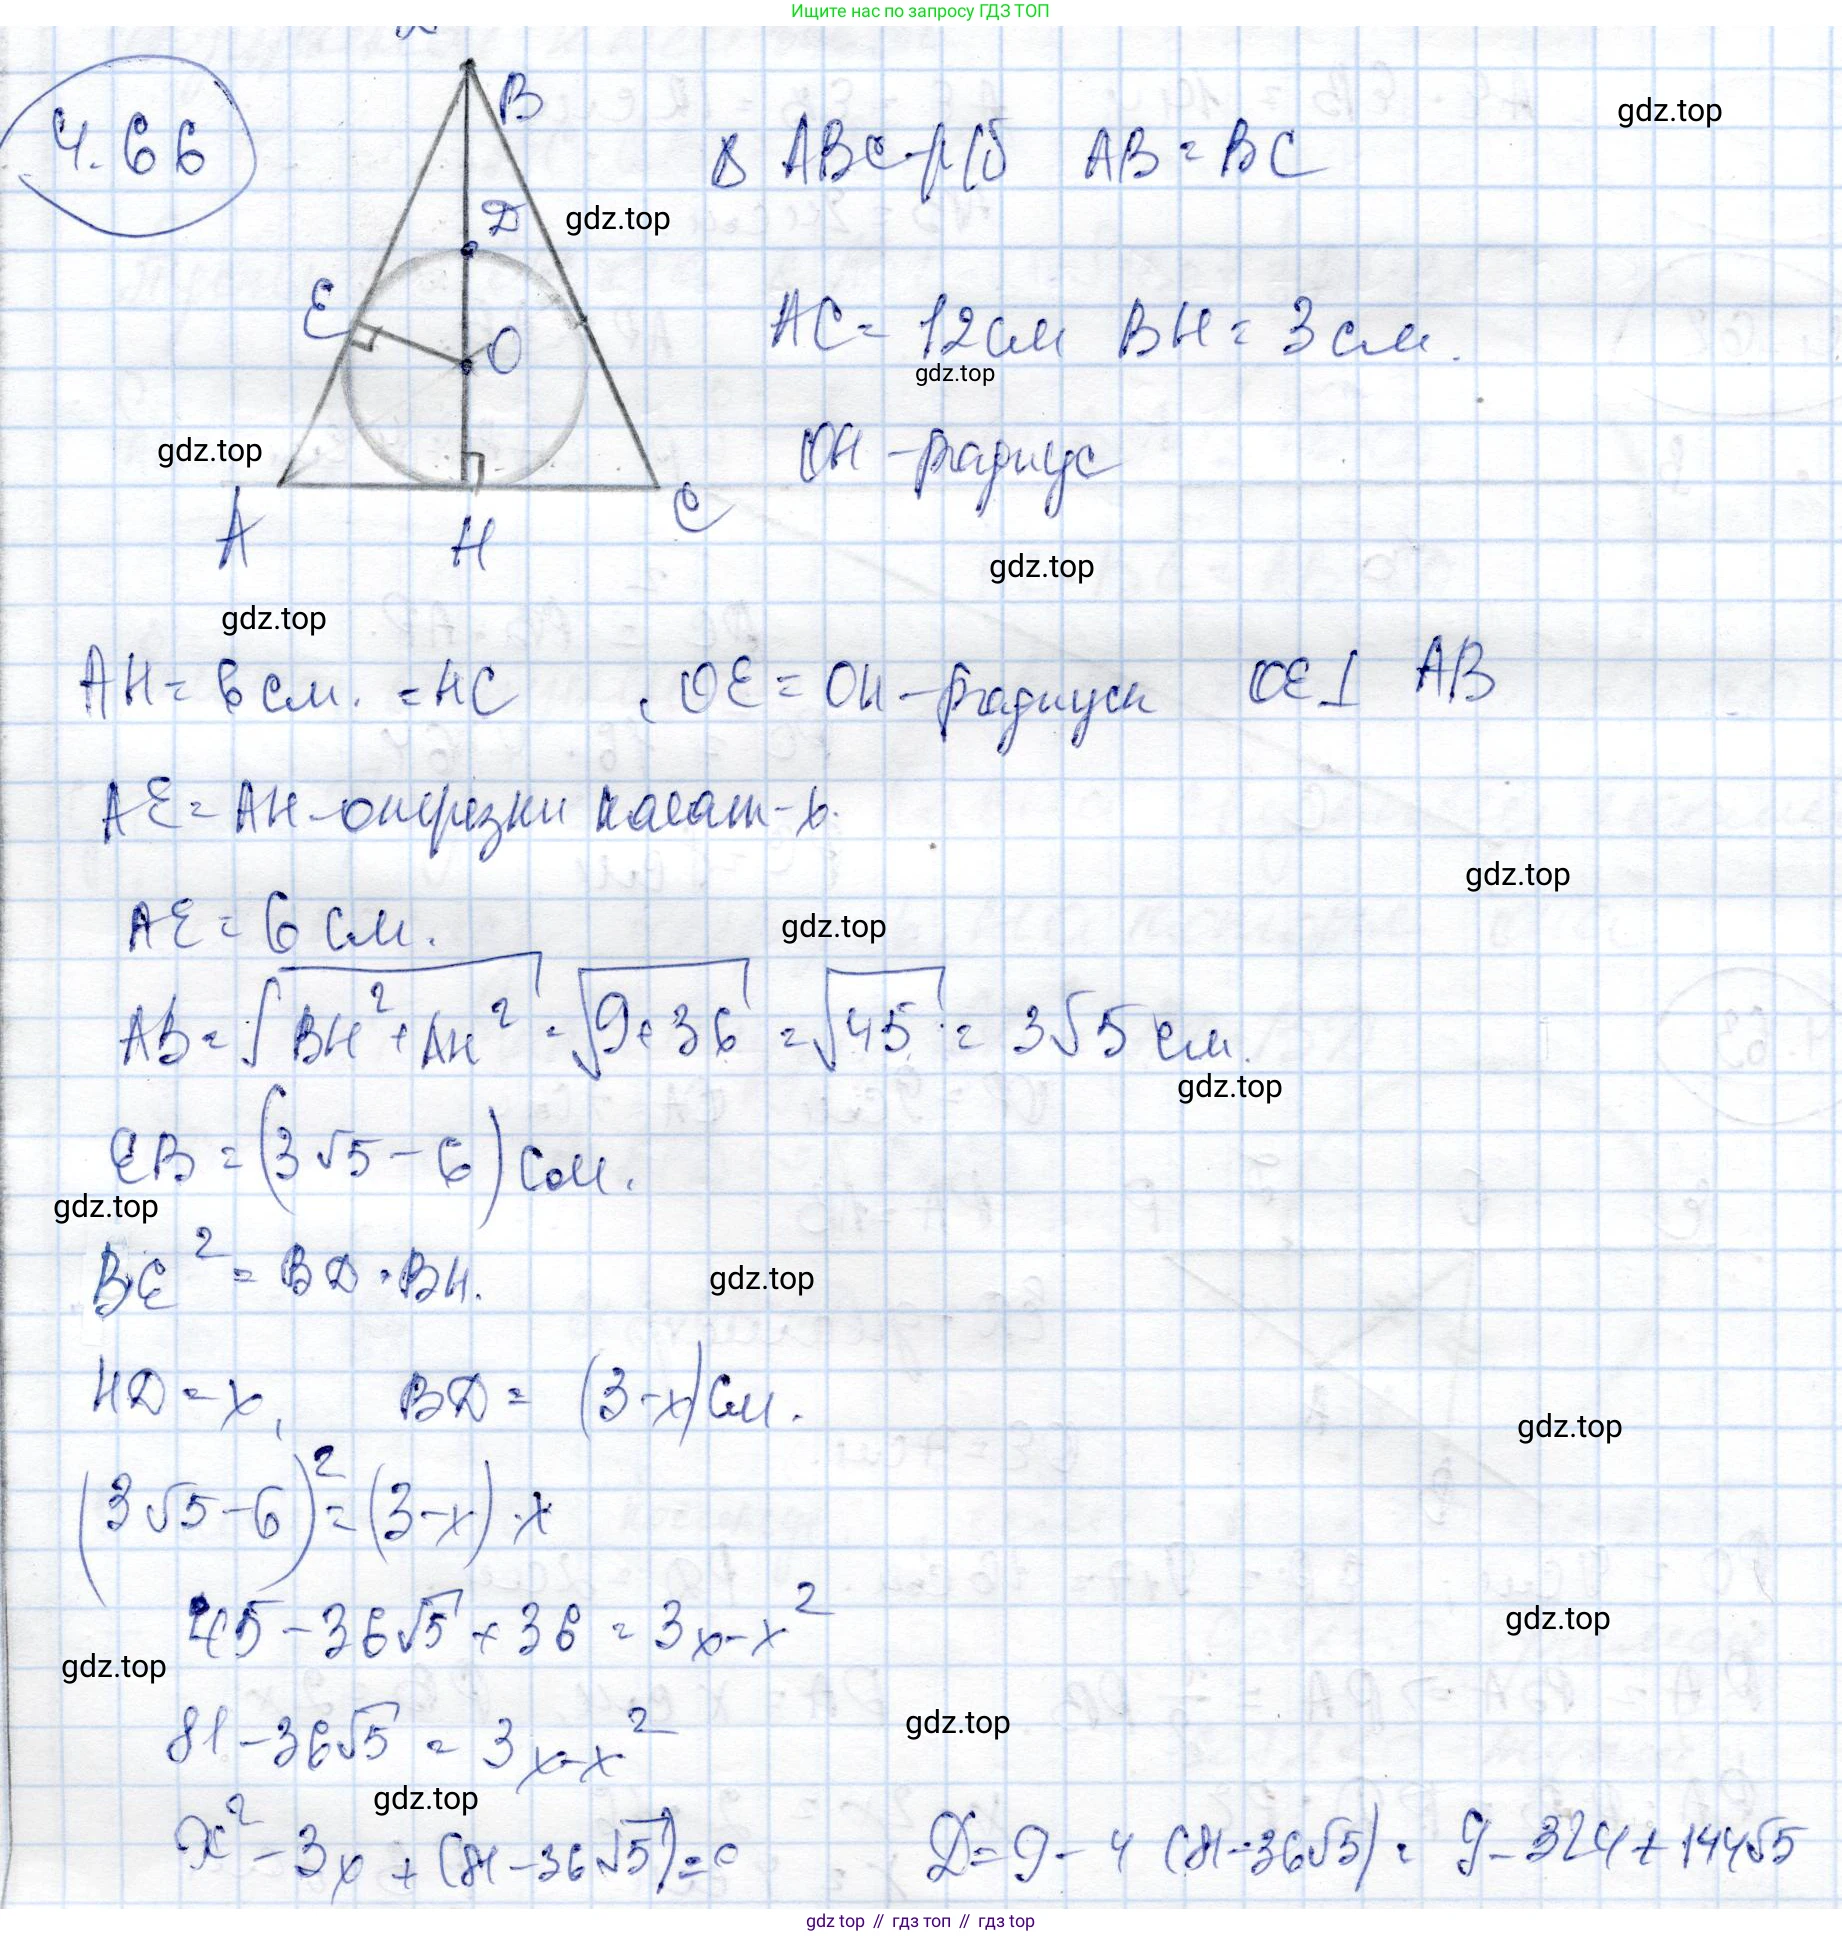 Ищите нас по запросу ГДЗ ТОП
4.66
B
Δ ABC - р/б AB = BC
gdz.top
D
gdz.top
E
O
AC = 12 см BH = 3 см.
gdz.top
gdz.top
OH - радиус
A
H
C
gdz.top
gdz.top
AH = 6 см. = HC , OE = OH - радиусы OE ⊥ AB
AE = AH - отрезки касат-х.
gdz.top
AE = 6 см.
gdz.top
AB = √BH² + AH² = √9+36 = √45 = 3√5 см.
gdz.top
EB = (3√5 - 6) см.
gdz.top
BE² = BD · BH.
gdz.top
HD = x, BD = (3-x) см.
gdz.top
(3√5 - 6)² = (3-x) · x
45 - 36√5 + 36 = 3x - x²
gdz.top
gdz.top
81 - 36√5 = 3x - x²
gdz.top
gdz.top
x² - 3x + (81 - 36√5) = 0 D = 9 - 4 (81 - 36√5) = 9 - 324 + 144√5
gdz top // гдз топ // гдз top